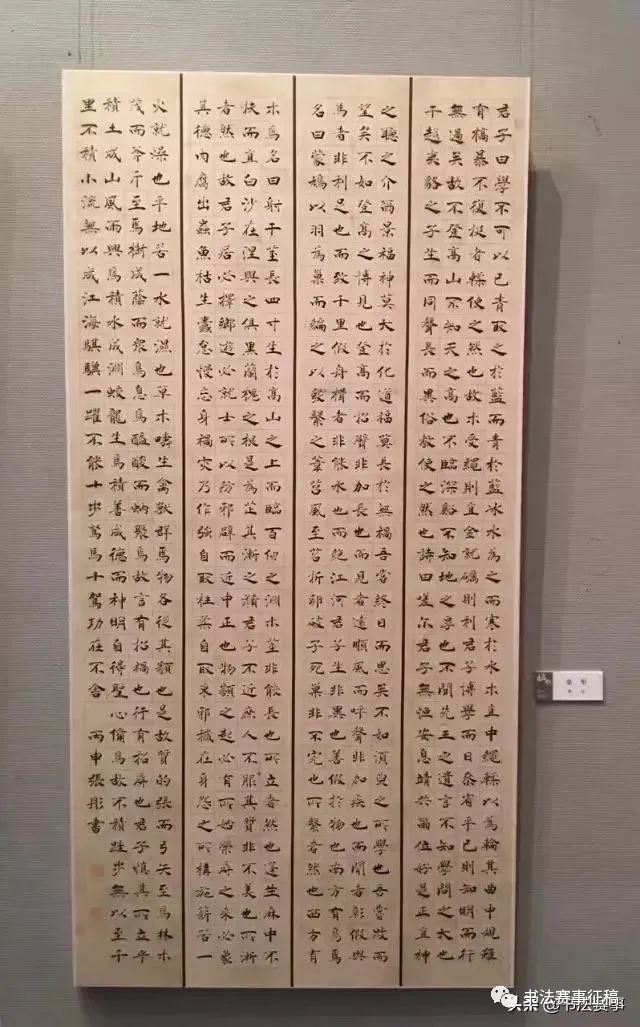 君子曰學不可以已青取之於藍而青於藍冰水為之而寒於水木直中繩輮以為輪其曲中規雖
有槁暴不復挺者輮使之然也故木受繩則直金就礪則利君子博學而日參省乎己則知明而行
無過矣故不登高山不知天之高也不臨深谿不知地之厚也不聞先王之遺言不知學問之大也
干越夷貉之子生而同聲長而異俗教使之然也詩曰嗟尔君子無恒安息靖共爾位好是正直神
之聽之介爾景福神莫大於化道福莫長於無禍吾嘗終日而思矣不如須臾之所學也吾嘗跂而
望矣不如登高之博見也登高而招臂非加長也而見者遠順風而呼聲非加疾也而聞者彰假輿
馬者非利足也而致千里假舟楫者非能水也而絕江河君子生非異也善假於物也南方有鳥焉
名曰蒙鳩以羽為巢而編之以髮繫之葦苕風至苕折卵破子死巢非不完也所繫者然也西方有
木焉名曰射干莖長四寸生於高山之上而臨百仞之淵木莖非能長也所立者然也蓬生麻中不
扶而直白沙在涅與之俱黑蘭槐之根是為芷其漸之滫君子不近庶人不服其質非不美也所漸
者然也故君子居必擇鄉遊必就士所以防邪辟而近中正也物類之起必有所始榮辱之來必象
其德肉腐出蟲魚枯生蠹怠慢忘身禍灾乃作強自取柱柔自取束邪穢在身怨之所構施薪若一
火就燥也平地若一水就濕也草木疇生禽獸群焉物各從其類也是故質的張而弓矢至焉林木
茂而斧斤至焉樹成蔭而眾鳥息焉醯酸而蚋聚焉故言有招禍也行有招辱也君子慎其所立乎
積土成山風雨興焉積水成淵蛟龍生焉積善成德而神明自得聖心備焉故不積跬步無以至千
里不積小流無以成江海騏驥一躍不能十步駑馬十駕功在不舍 丙申張彤書
书法赛事征稿
头条@书法赛事